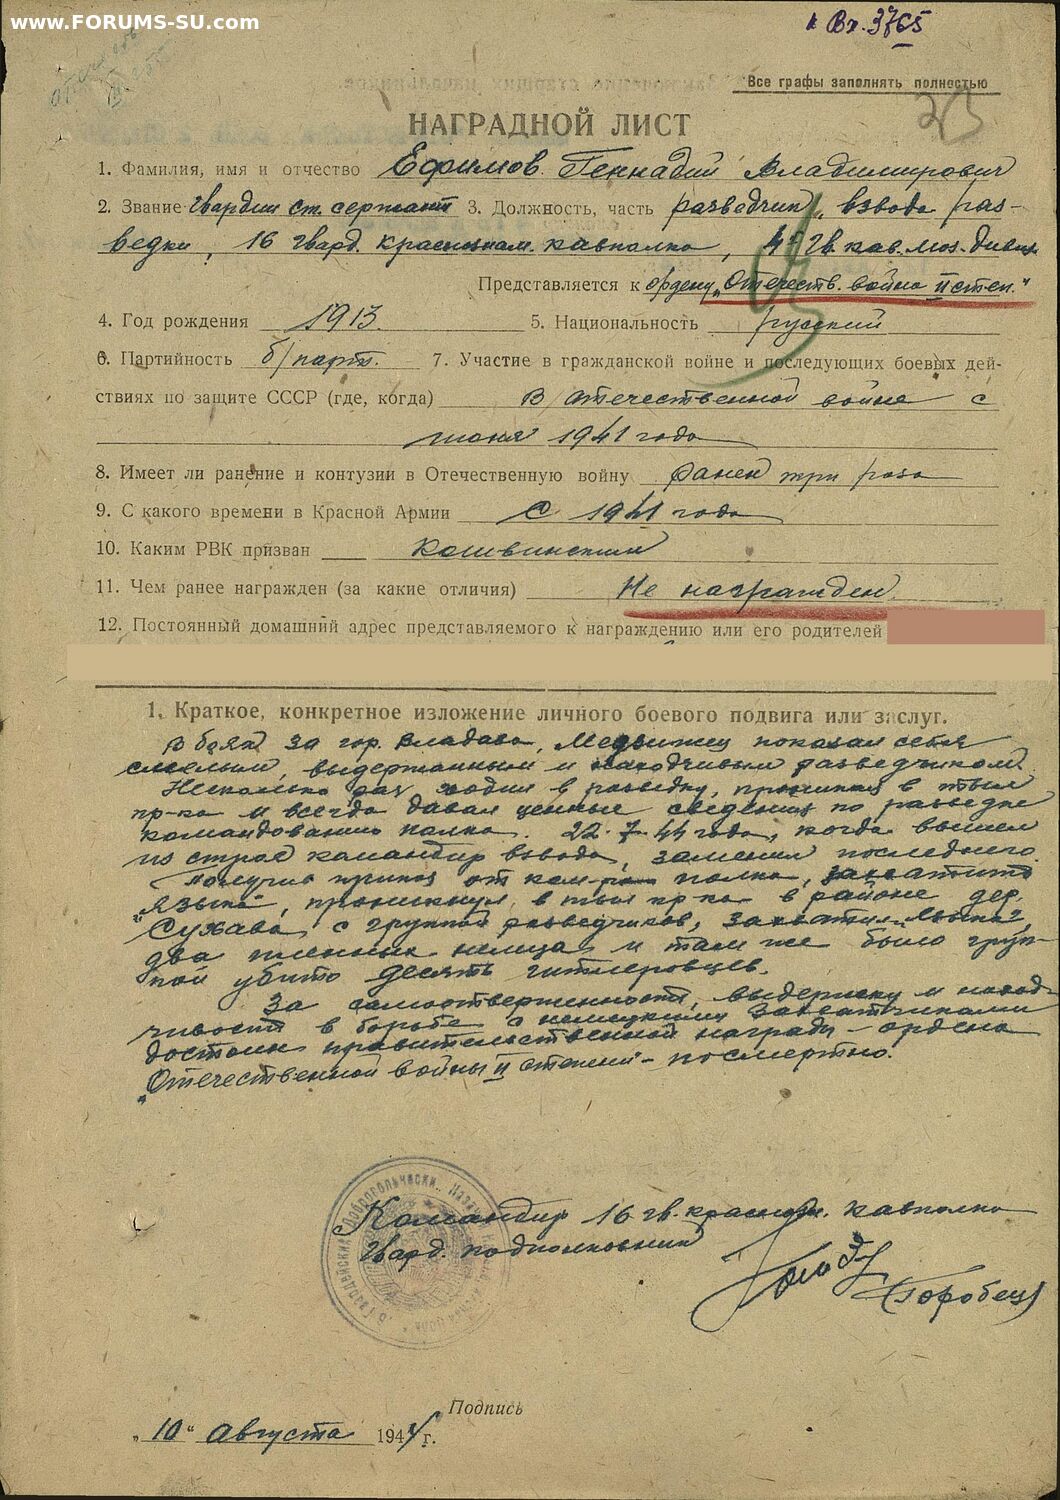 www.FORUMS-SU.com
Вх. 3765
Все графы заполнять полностью
НАГРАДНОЙ ЛИСТ
1. Фамилия, имя и отчество Ефимов Геннадий Владимирович
2. Звание Гвардии ст. сержант 3. Должность, часть разведчик взвода раз-
ведки, 16 гвард. краснознам. кавполка,
Представляется к ордену „Отечеств. война II степ."
4. Год рождения 1913. 5. Национальность русский
6. Партийность б/парт. 7. Участие в гражданской войне и последующих боевых дей-
ствиях по защите СССР (где, когда) В отечественной войне с
июня 1941 года
8. Имеет ли ранение и контузии в Отечественную войну Ранен три раза
9. С какого времени в Красной Армии С 1941 года
10. Каким РВК призван
11. Чем ранее награжден (за какие отличия) Не награжден.
12. Постоянный домашний адрес представляемого к награждению или его родителей
1. Краткое, конкретное изложение личного боевого подвига или заслуг.
В боях за гор. Владава, показал себя
смелым, выдержанным и находчивым разведчиком.
Несколько раз ходил в разведку, проникал в тыл
пр-ка и всегда давал ценные сведения по разведке
командованию полка. 22.7.44 года, когда вышел
из строя командир взвода, заменил последнего.
Получив приказ от ком-ра полка, захватить
„языка", проникнув в тыл пр-ка в районе дер.
Сухава с группой разведчиков, захватил „языка",
два пленных немца и там же было груп-
пой убито десять гитлеровцев.
За самоотверженность, выдержку и наход-
чивость в борьбе с немецкими захватчиками
достоин правительственной награды - ордена
„Отечественной войны II степени" - посмертно.
Командир 16 гв. краснозн. кавполка
Гвард. подполковник
(Горобец)
Подпись
„10" августа 1944 г.